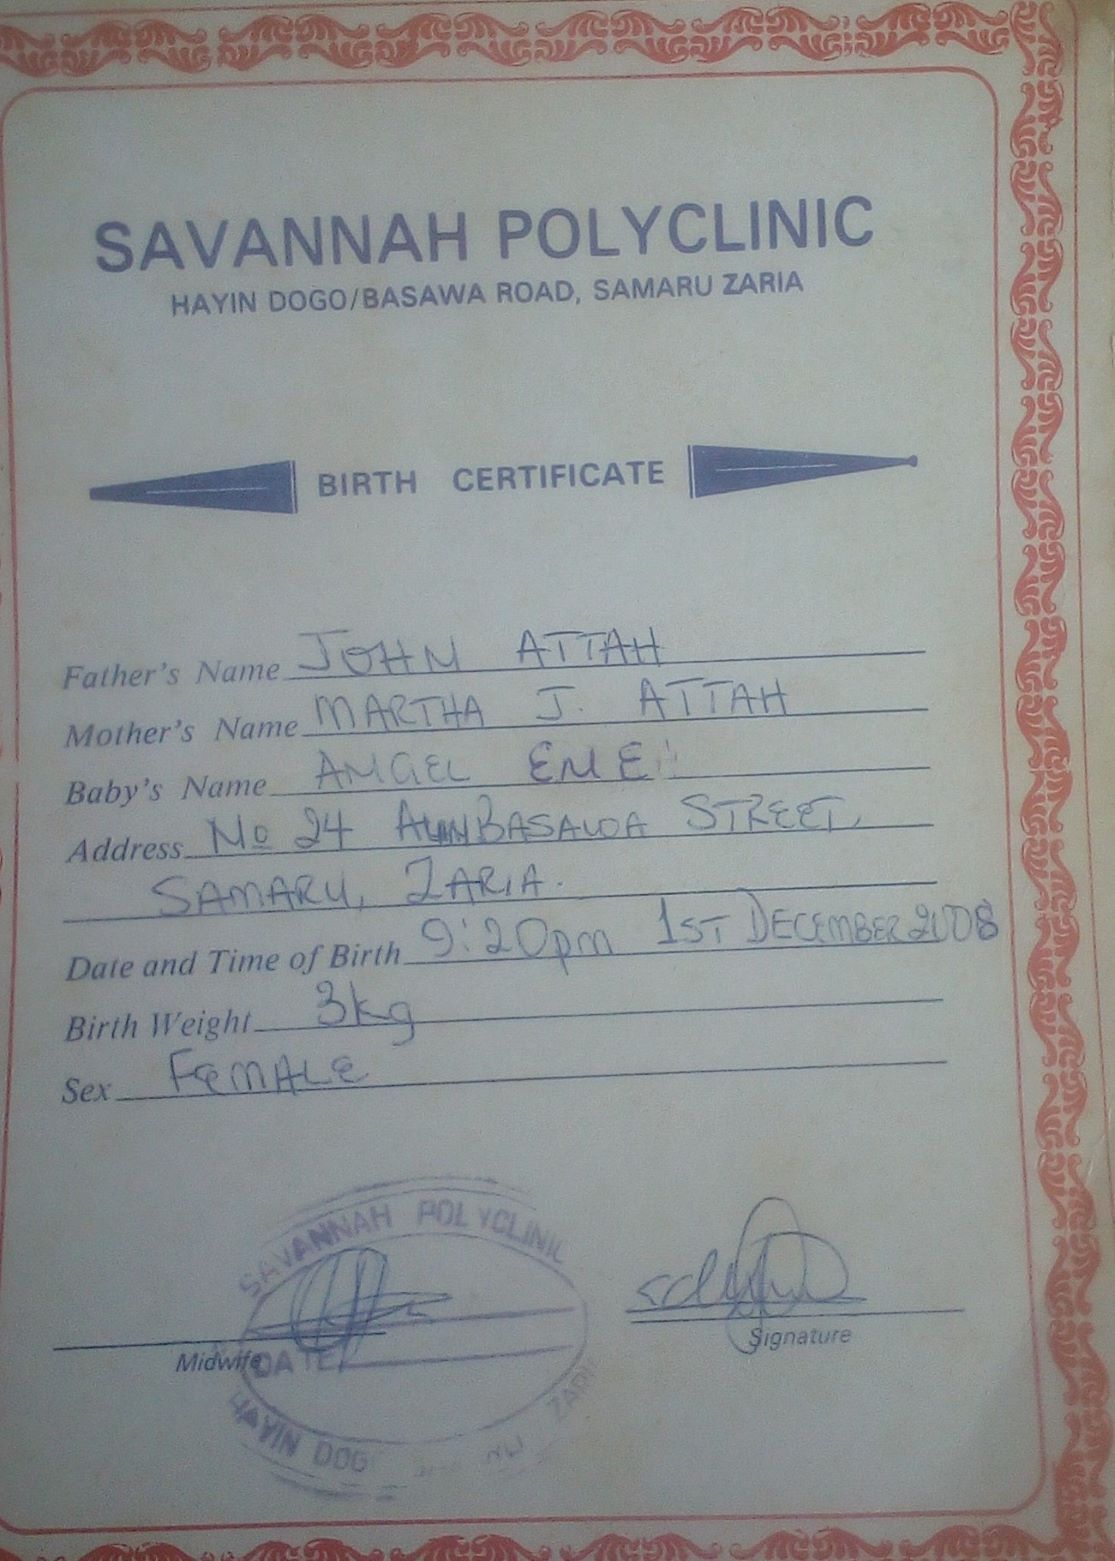 SAVANNAH POLYCLINIC
HAYIN DOGO/BASAWA ROAD, SAMARU ZARIA
BIRTH CERTIFICATE
Father's Name JOHN ATTAH
Mother's Name MARTHA J. ATTAH
Baby's Name ANGEL ENE
Address No 24 BASAWA STREET,
SAMARU, ZARIA.
Date and Time of Birth 9:20pm 1ST DECEMBER 2008
Birth Weight 3kg
Sex FEMALE
SAVANNAH POLYCLINIC
Signature
Midwife DATE
HAYIN DOG ZARI